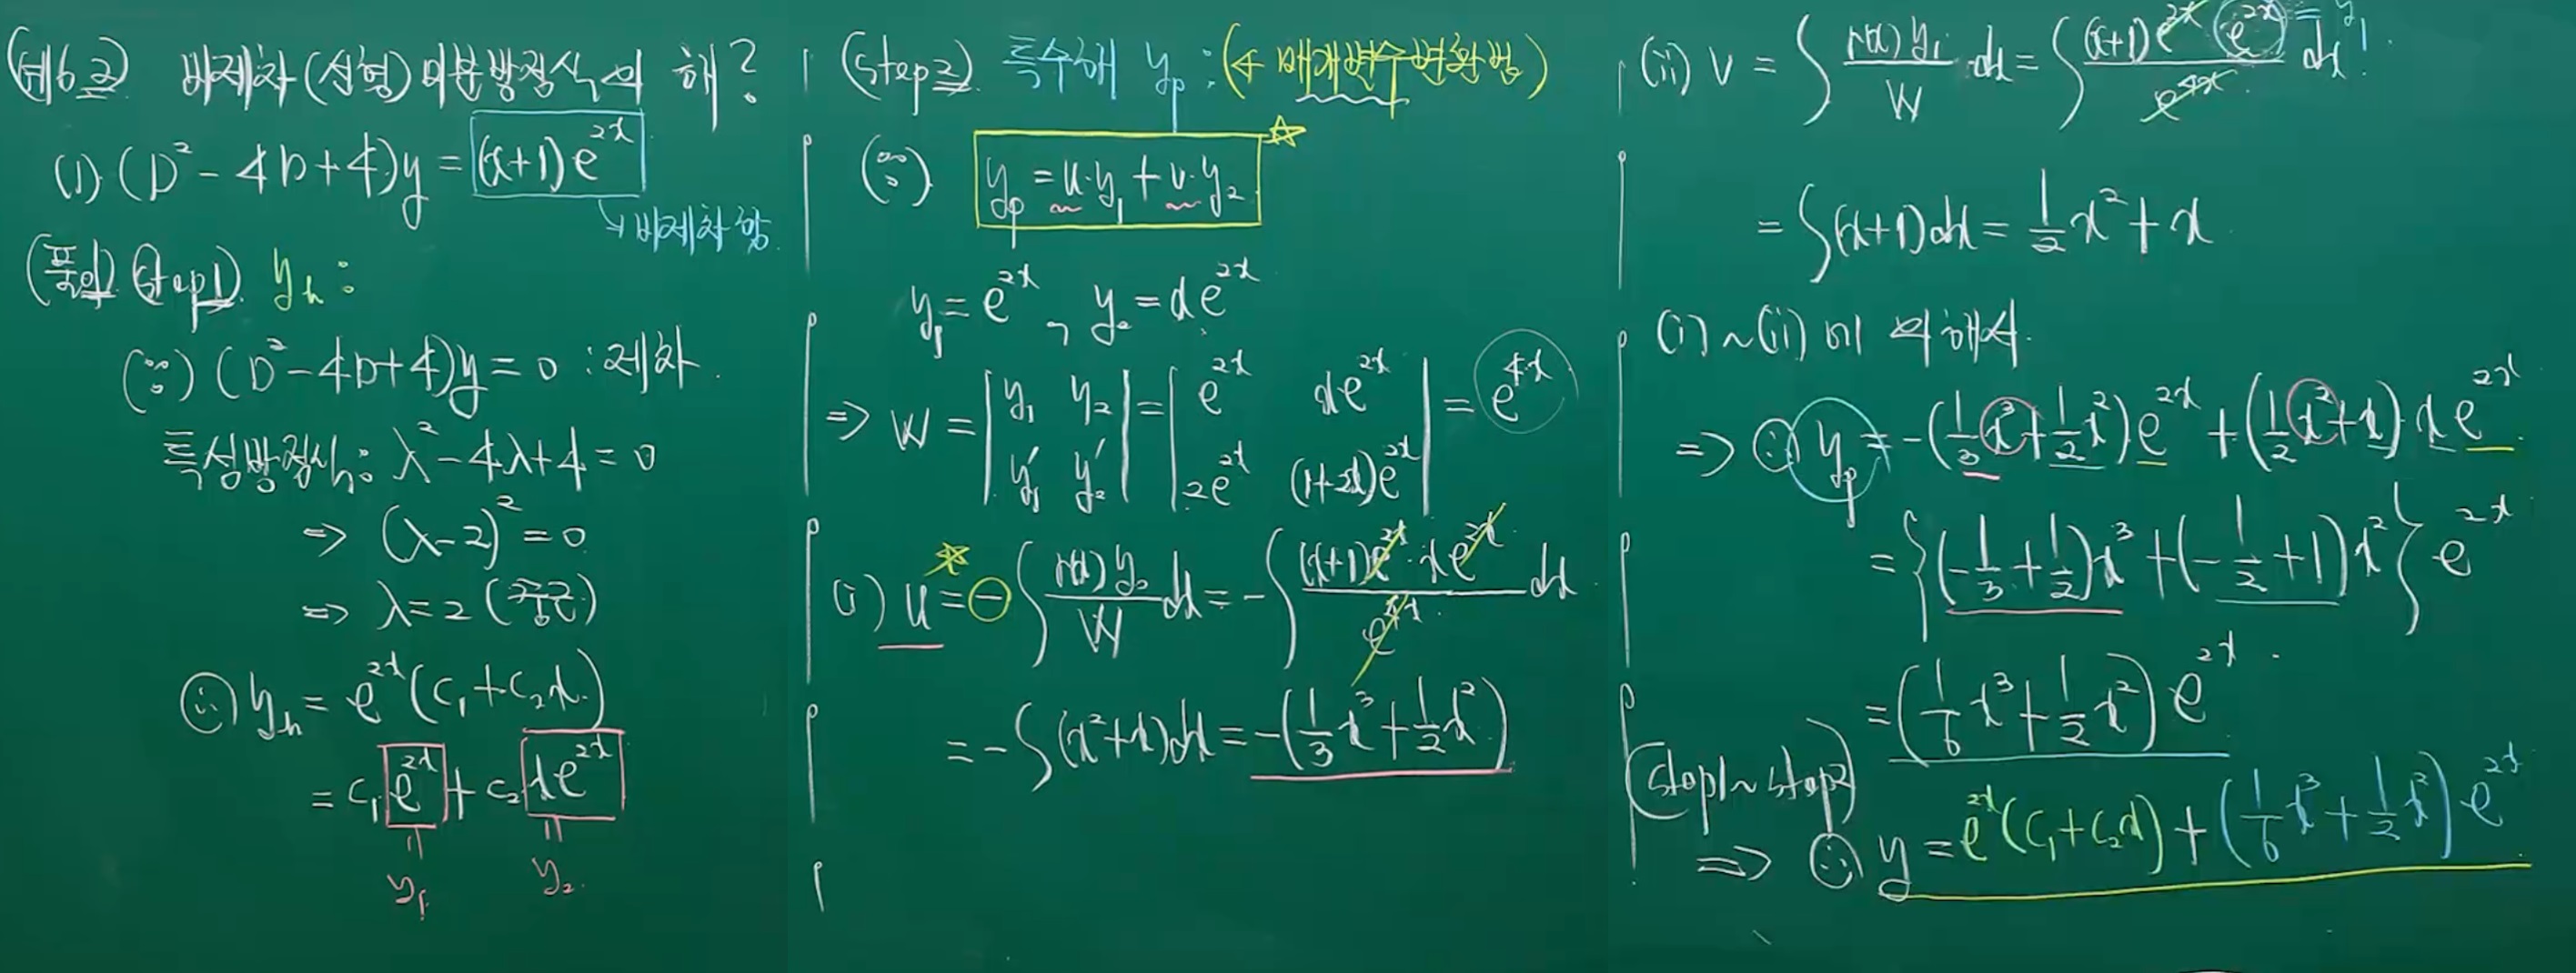 (예6.2) 비제차(선형)미분방정식의 해?
(1) (D² - 4D + 4)y = (x+1)e^{2x}
↳ 비제차항
(풀이) (Step1) y_h :
(∵) (D² - 4D + 4)y = 0 : 제차.
특성방정식: λ² - 4λ + 4 = 0
⇒ (λ-2)² = 0
⇒ λ = 2 (중근)
∴ y_h = e^{2x}(c₁ + c₂x)
= c₁e^{2x} + c₂xe^{2x}
= =
y₁ y₂
(Step2) 특수해 y_p : (← 매개변수변환법)
(∵) y_p = u·y₁ + v·y₂ ☆
y₁ = e^{2x}, y₂ = xe^{2x}
⇒ W = |y₁ y₂; y₁' y₂'| = |e^{2x} xe^{2x}; 2e^{2x} (1+2x)e^{2x}| = e^{4x}
(i) u = -∫ r(x)y₂/W dx = -∫ (x+1)e^{2x}·xe^{2x}/e^{4x} dx
= -∫(x²+x)dx = -(1/3 x³ + 1/2 x²)
(ii) v = ∫ r(x)y₁/W dx = ∫ (x+1)e^{2x} e^{2x}/e^{4x} dx = y₁
= ∫(x+1)dx = 1/2 x² + x
(i)~(ii)에 의해서
⇒ ∴ y_p = -(1/3 x³ + 1/2 x²)e^{2x} + (1/2 x² + x)·xe^{2x}
= {(-1/3 + 1/2)x³ + (-1/2 + 1)x²}e^{2x}
= (1/6 x³ + 1/2 x²)e^{2x}.
(step1~step2)
⇒ ∴ y = e^{2x}(c₁ + c₂x) + (1/6 x³ + 1/2 x²)e^{2x}